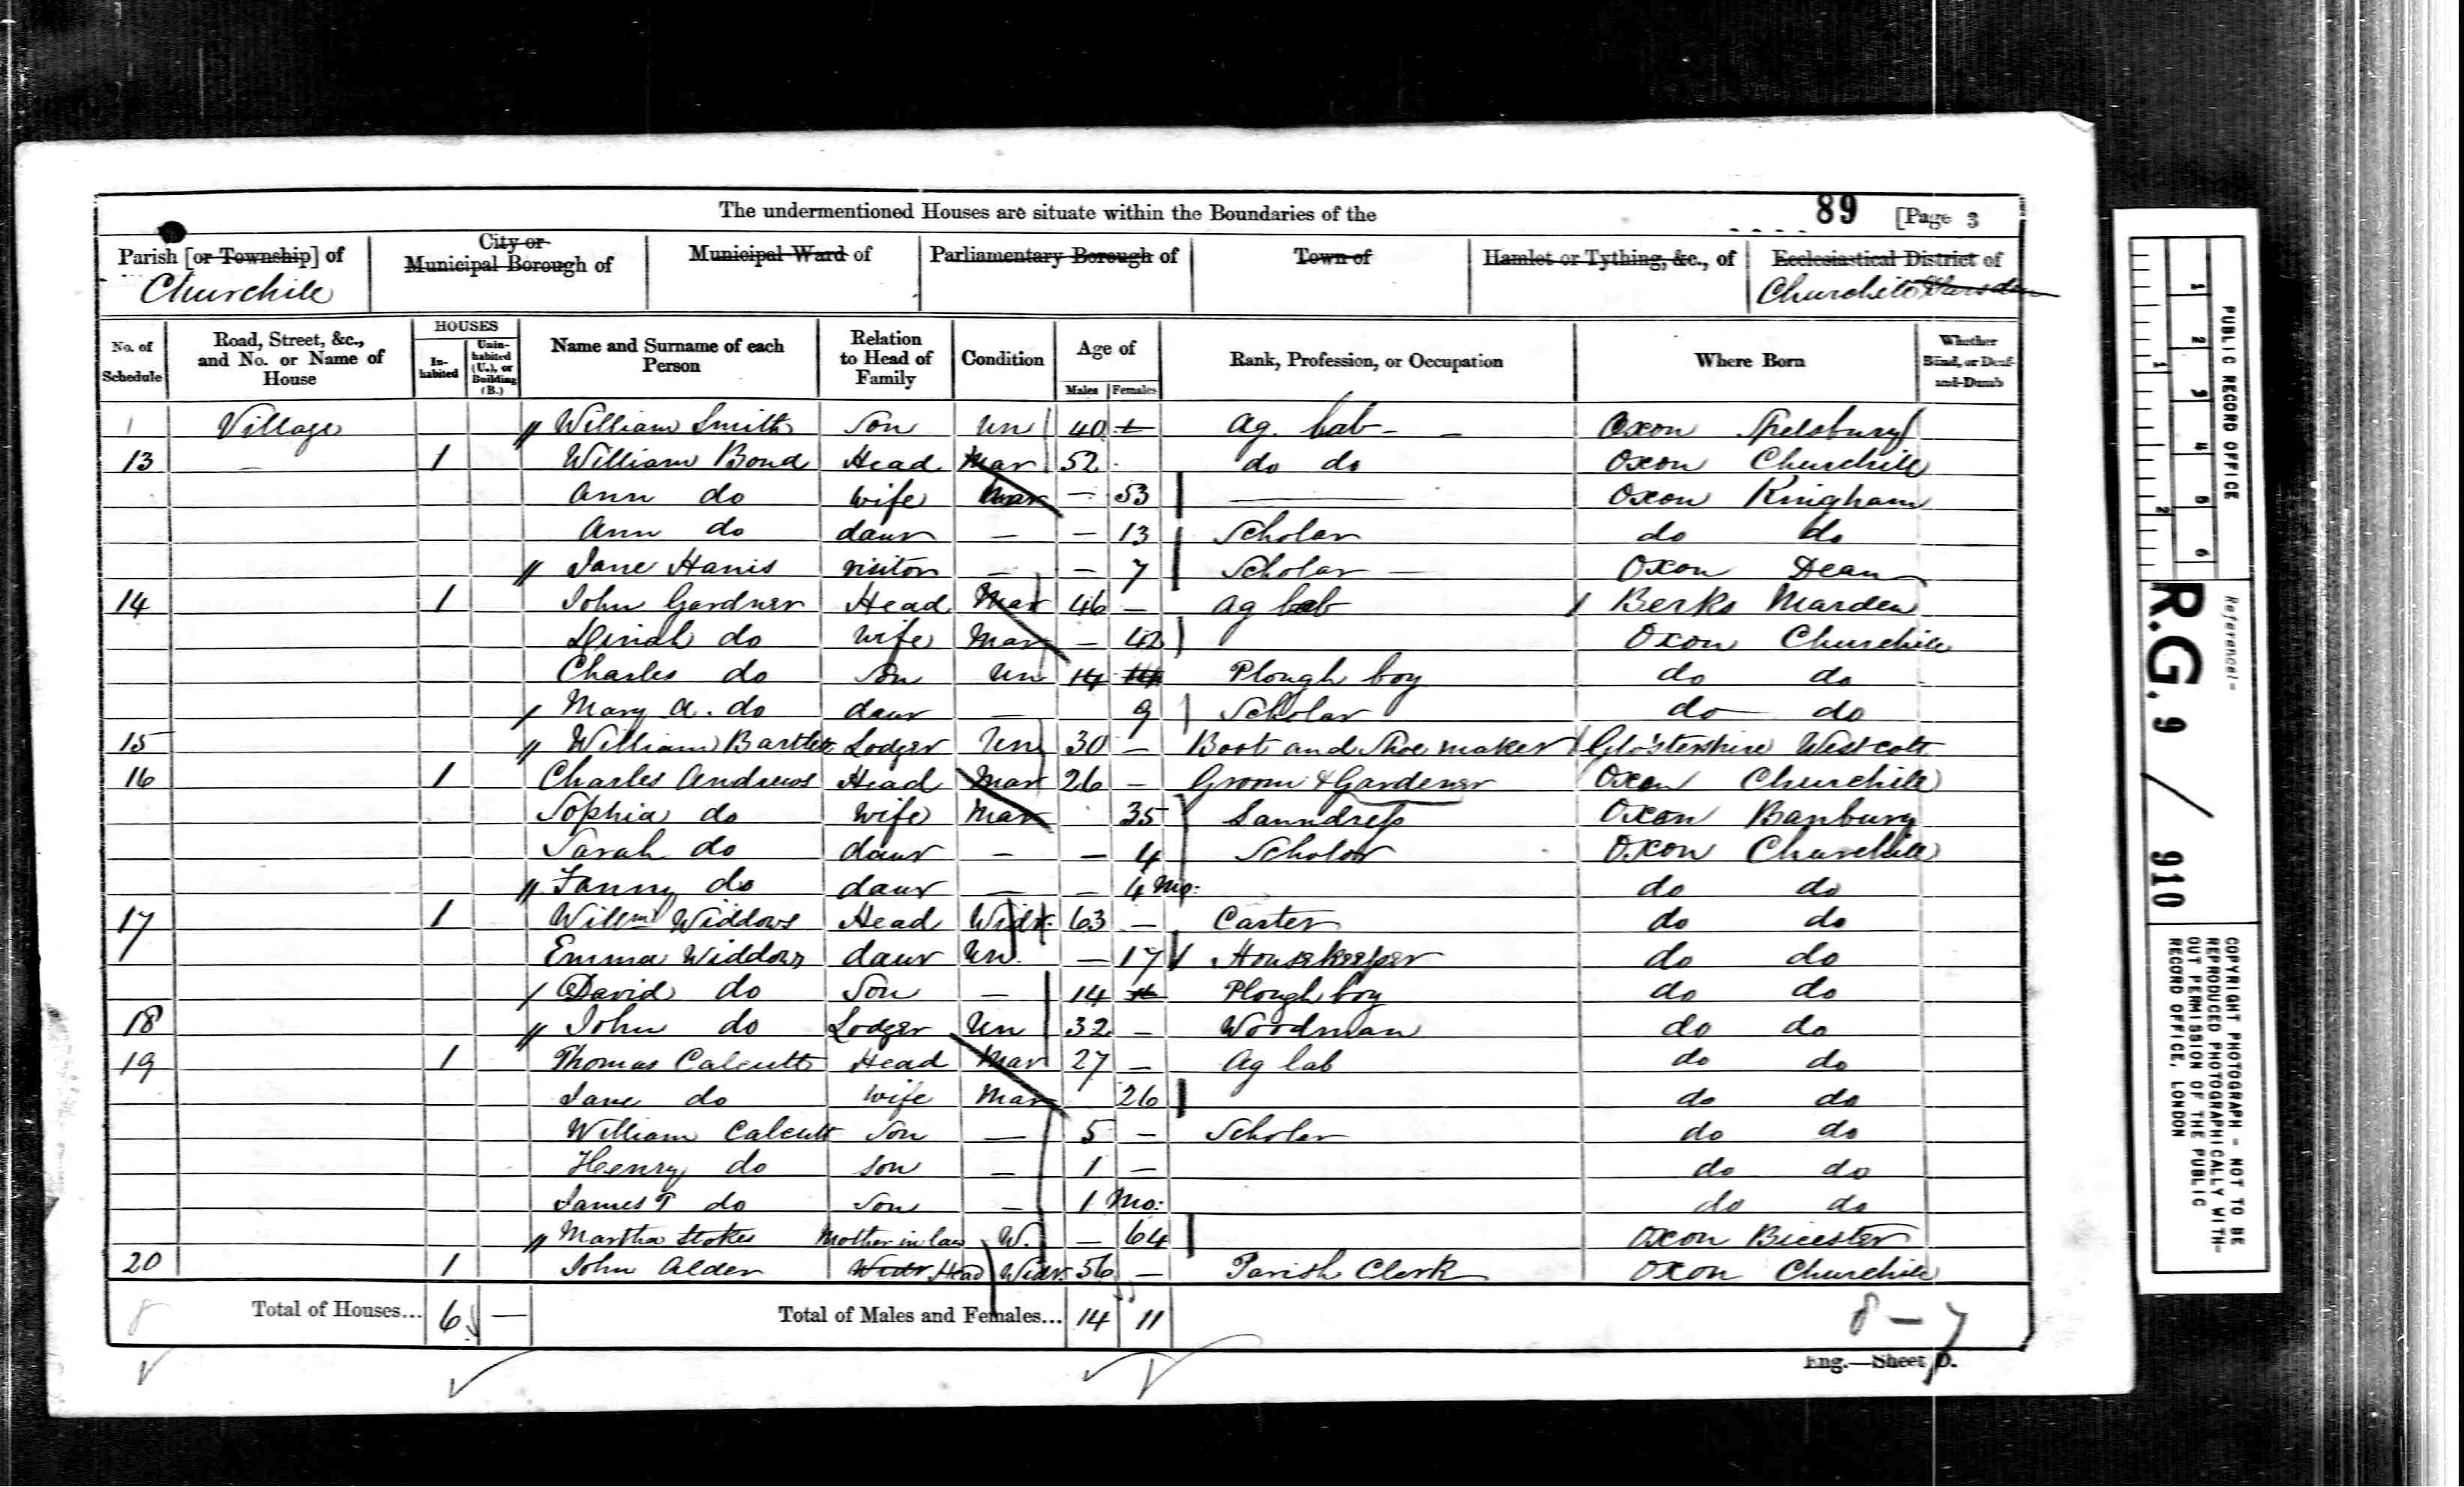 The undermentioned Houses are situate within the Boundaries of the 89 [Page 3
Parish [or Township] of City or Municipal Borough of Municipal Ward of Parliamentary Borough of Town of Hamlet or Tything, &c., of Ecclesiastical District of
Churchill Churchill
No. of Schedule Road, Street, &c., and No. or Name of House HOUSES In-habited Unin-habited (U.), or Building (B.) Name and Surname of each Person Relation to Head of Family Condition Age of Males Females Rank, Profession, or Occupation Where Born Whether Blind, or Deaf-and-Dumb
Village William Smith Son Un 40 Ag. Lab Oxon Spelsbury
13 1 William Bond Head Mar 52 do do Oxon Churchill
Ann do Wife Mar — 53 Oxon Kingham
Ann do daur — — 13 Scholar do do
Jane Hanis visitor — — 7 Scholar Oxon Dean
14 1 John Gardner Head Mar 46 — Ag Lab Berks Marden
Dinah do Wife Mar — 42 Oxon Churchill
Charles do Son Un 14 Plough boy do do
Mary A. do daur — 9 Scholar do do
15 William Bartlet Lodger Un 30 — Boot and Shoe maker Glo'stershire Westcott
16 1 Charles Andrews Head Mar 26 — Groom & Gardener Oxon Churchill
Sophia do Wife Mar 35 Laundress Oxon Banbury
Sarah do daur — — 4 Scholar Oxon Churchill
Fanny do daur — — 4 Mo: do do
17 1 Willm Widdows Head Widr. 63 — Carter do do
Emma Widdows daur Un. — 17 Housekeeper do do
David do Son — 14 Plough boy do do
18 John do Lodger Un 32 — Woodman do do
19 1 Thomas Calcutt Head Mar 27 — Ag lab do do
Jane do Wife Mar 26 do do
William Calcutt Son — 5 — Scholar do do
Henry do Son — 1 — do do
James T do Son — 1 Mo: do do
Martha Stokes Mother in law W. — 64 Oxon Bicester
20 1 John Alder Widr Head Widr. 56 — Parish Clerk Oxon Churchill
8 Total of Houses... 6 — Total of Males and Females... 14 11 8 – 7
Eng.—Sheet D.
PUBLIC RECORD OFFICE
1 2 3 4 5 6
1 2
Reference:-
R.G. 9 / 910
COPYRIGHT PHOTOGRAPH - NOT TO BE
REPRODUCED PHOTOGRAPHICALLY WITH-
OUT PERMISSION OF THE PUBLIC
RECORD OFFICE, LONDON